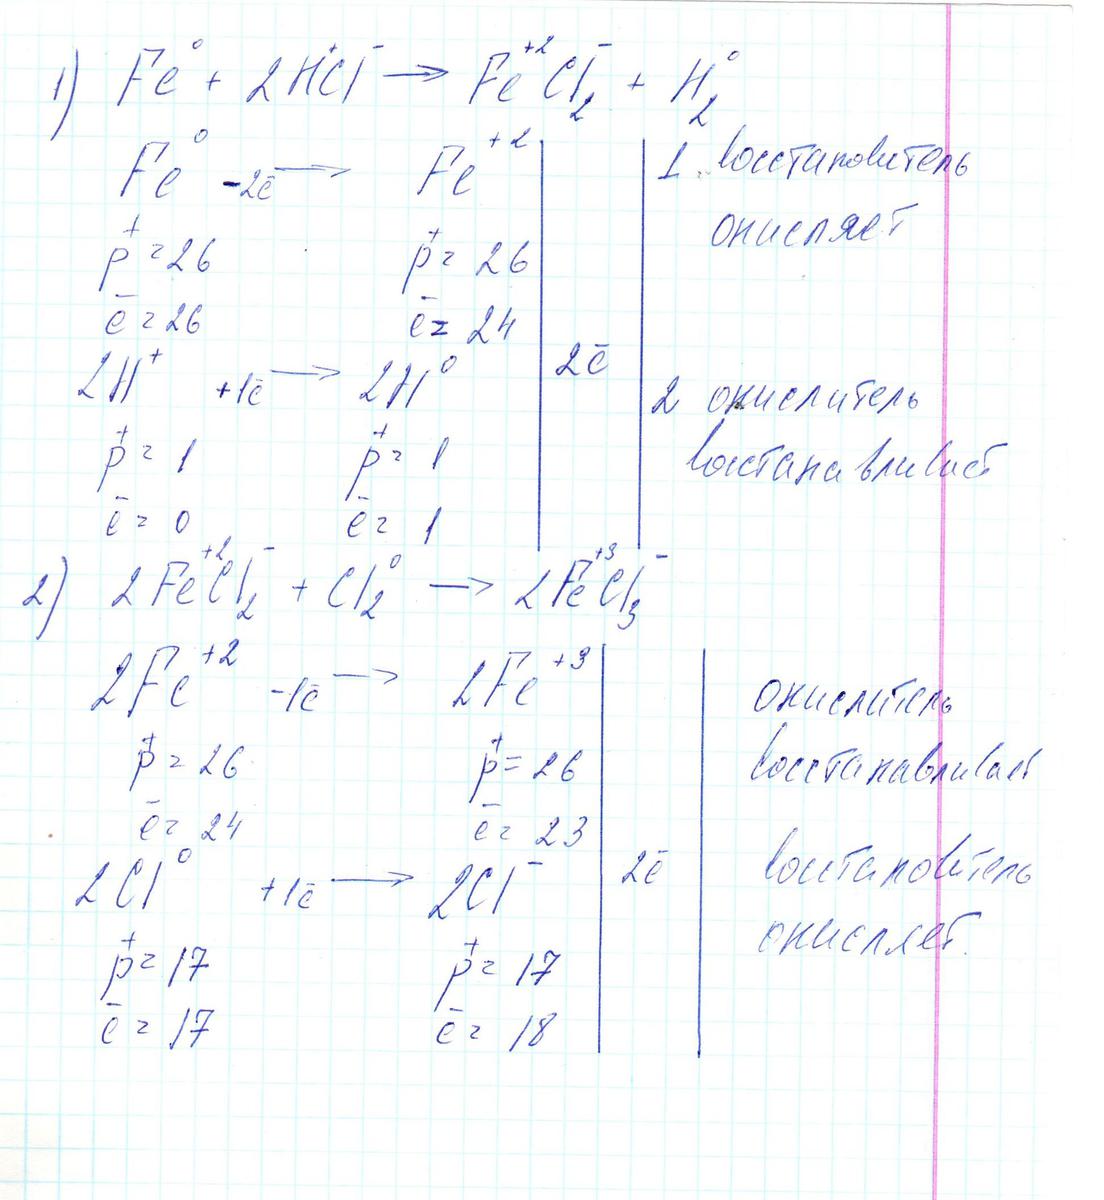 1) Fe⁰ + 2H⁺Cl⁻ → Fe⁺²Cl₂⁻ + H₂⁰
Fe⁰ -2ē → Fe⁺² 1 восстановитель
окисляет
p⁺ = 26 p⁺ = 26
ē = 26 ē = 24
2H⁺ +1ē → 2H⁰ 2ē 2 окислитель
p⁺ = 1 p⁺ = 1 востанавливает
ē = 0 ē = 1
2) 2Fe⁺²Cl₂⁻ + Cl₂⁰ → 2Fe⁺³Cl₃⁻
2Fe⁺² -1ē → 2Fe⁺³ окислитель
p⁺ = 26 p⁺ = 26 восстанавливает
ē = 24 ē = 23
2Cl⁰ +1ē → 2Cl⁻ 2ē восстановитель
окисляет.
p⁺ = 17 p⁺ = 17
ē = 17 ē = 18